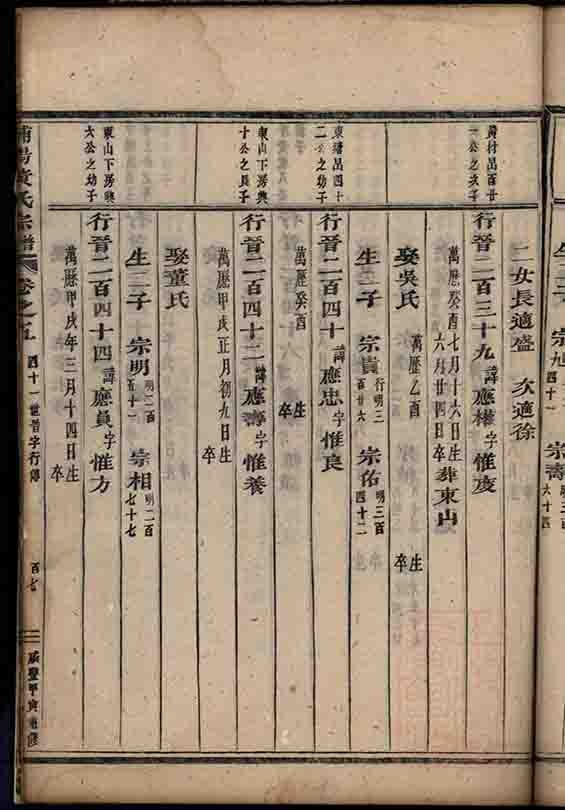 生三子 宗旭 四十一 宗壽 六十四
二女長適盛 次適徐
行晉二百三十九諱應權字惟度
萬歷癸酉七月十六日生
六月廿四日卒 葬東山
娶吳氏 萬歷乙酉 生 卒
生二子 宗貴 行明三百廿六 宗佑 明三百四十二
東塘昂四十二公之幼子
行晉二百四十諱應忠字惟良
萬歷癸酉 生 卒
東山下房興十公之長子
行晉二百四十二諱應壽字惟養
萬歷甲戌正月初九日生 卒
娶董氏
生二子 宗明 明二百五十一 宗相 明二百七十七
東山下房興六公之幼子
行晉二百四十四諱應員字惟方
萬歷甲戌年三月十四日生 卒
浦陽黃氏宗譜 卷之五 四十一世晉字行傳 百七 咸豐甲寅重修